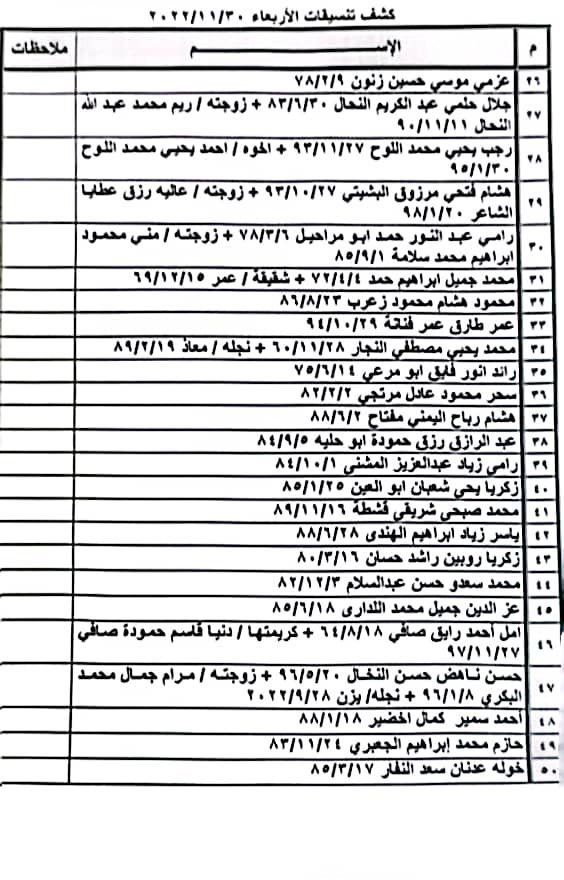 كشف تنسيقات الأربعاء ٢٠٢٢/١١/٣٠
م الإســـــــــم ملاحظات
٢٦ عزمي موسي حسين زنون ٧٨/٢/٩
٢٧ جلال حلمي عبد الكريم النحال ٨٣/٦/٣٠ + زوجته / ريم محمد عبد الله
النحال ٩٠/١١/١١
٢٨ رجب يحيي محمد اللوح ٩٣/١١/٢٧ + اخوه / احمد يحيي محمد اللوح
٩٥/١/٣٠
٢٩ هشام فتحي مرزوق البشيتي ٩٣/١٠/٢٧ + زوجته / عاليه رزق عطايا
الشاعر ٩٨/١/٢٠
٣٠ رامي عبد النور حمد ابو مراحيل ٧٨/٣/٦ + زوجته / مني محمود
ابراهيم محمد سلامة ٨٥/٩/١
٣١ محمد جميل ابراهيم حمد ٧٢/٤/٤ + شقيقة / عمر ٦٩/١٢/١٥
٣٢ محمود هشام محمود زعرب ٨٦/٨/٢٣
٣٣ عمر طارق عمر فنانة ٩٤/١٠/٢٩
٣٤ محمد يحيي مصطفي النجار ٦٠/١١/٢٨ + نجله / معاذ ٨٩/٢/١٩
٣٥ رائد انور فايق ابو مرعي ٧٥/٦/١٤
٣٦ سحر محمود عادل مرتجي ٨٢/٢/٢
٣٧ هشام رباح اليمني مفتاح ٨٨/٦/٢
٣٨ عبد الرازق رزق حمودة ابو حليه ٨٤/٩/٥
٣٩ رامي زياد عبدالعزيز المشني ٨٤/١٠/١
٤٠ زكريا يحي شعبان ابو العين ٨٥/١/٢٥
٤١ محمد صبحي شريقي قشطة ٨٩/١١/١٦
٤٢ ياسر زياد ابراهيم الهندى ٨٨/٦/٢٨
٤٣ زكريا روبين راشد حسان ٨٠/٣/١٦
٤٤ محمد سعدو حسن عبدالسلام ٨٢/١٢/٣
٤٥ عز الدين جميل محمد اللدارى ٨٥/٦/١٨
٤٦ امل أحمد رايق صافي ٦٤/٨/١٨ + كريمتها / دنيا قاسم حمودة صافي
٩٧/١١/٢٧
٤٧ حسن ناهض حسن النخال ٩٦/٥/٢٠ + زوجته / مرام جمال محمد
البكري ٩٦/١/٨ + نجله/ يزن ٢٠٢٢/٩/٢٨
٤٨ أحمد سمير كمال اخضير ٨٨/١/١٨
٤٩ حازم محمد إبراهيم الجعبري ٨٣/١١/٢٤
٥٠ خوله عدنان سعد النفار ٨٥/٣/١٧